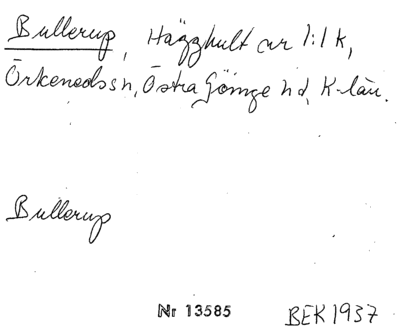 Bullerup, Hägghult nr 1:1 k,
Örkeneds sn, Östra Göinge hd, K-län.
Bullerup
Nr 13585
BEK 1937